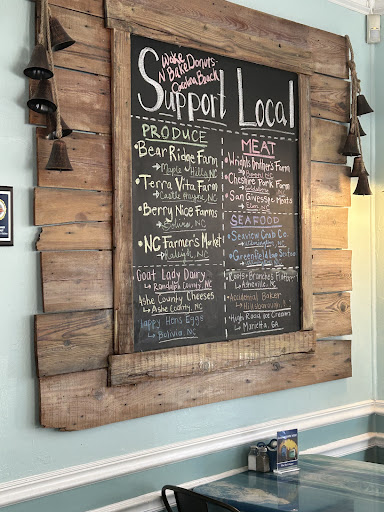 Wake
N Bake Donuts
Carolina Beach
Support Local
PRODUCE
• Bear Ridge Farm
↳ Maple Hills, NC
• Terra Vita Farm
↳ Castle Hayne, NC
• Berry Nice Farms
↳ Bolivia, NC
• NC Farmer's Market
↳ Raleigh, NC
Goat Lady Dairy
↳ Randolph County, NC
Ashe County Cheeses
↳ Ashe County, NC
Happy Hens Eggs
↳ Bolivia, NC
MEAT
• Wrights Brother's Farm
NC
• Cheshire Pork Farm
NC
• San Giuseppe Meats
↳ Elon, NC
SEAFOOD
• Seaview Crab Co.
↳ Wilmington, NC
•
• Roots & Branches
↳ Asheville, NC
• Accidental Baker
↳ Hillsborough
• High Road Ice Creams
↳ Marietta, GA